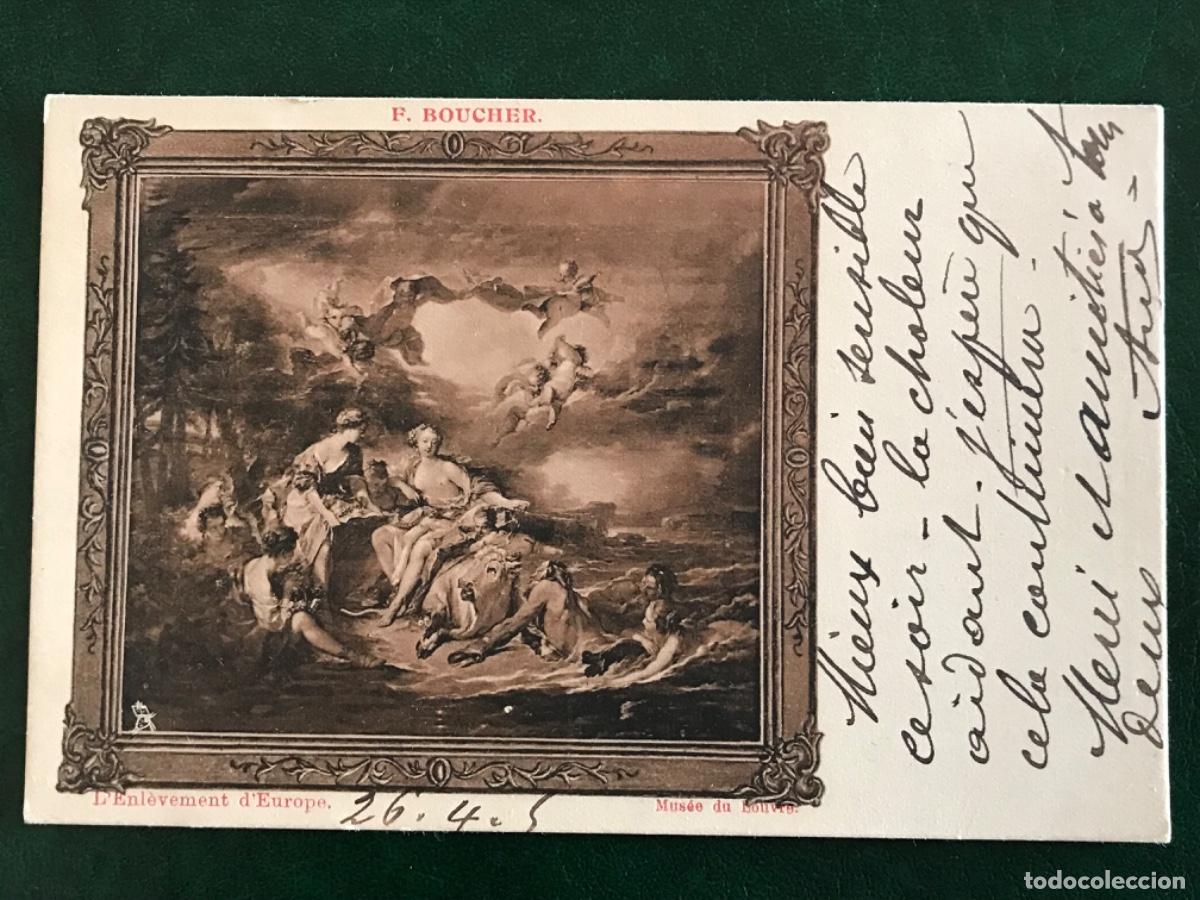 F. BOUCHER.
L'Enlèvement d'Europe.
Musée du Louvre.
26.4.5
Mieux bien sensible
ce soir - la chaleur
aidant - j'espère que
cela continuera -
Merci et amitiés à tous
deux
todocoleccion